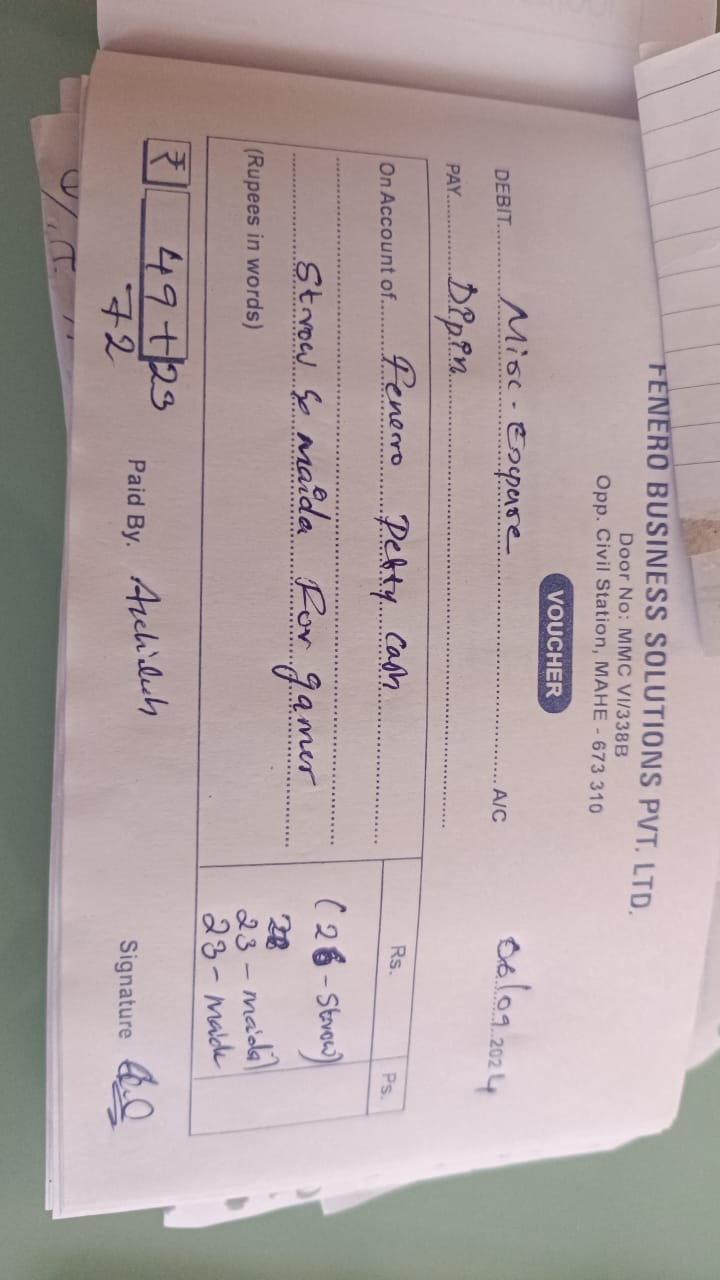 FENERO BUSINESS SOLUTIONS PVT. LTD.
Door No: MMC VI/338B
Opp. Civil Station, MAHE - 673 310
VOUCHER
06/09 2024
DEBIT Misc - Expense A/C
PAY Dipin
On Account of Fenero Petty cash
Rs. Ps.
Strow & maida For games
(26 - Strow)
23 - maida)
23 - maida
(Rupees in words)
₹ 49 + 23
72
Paid By.
Signature